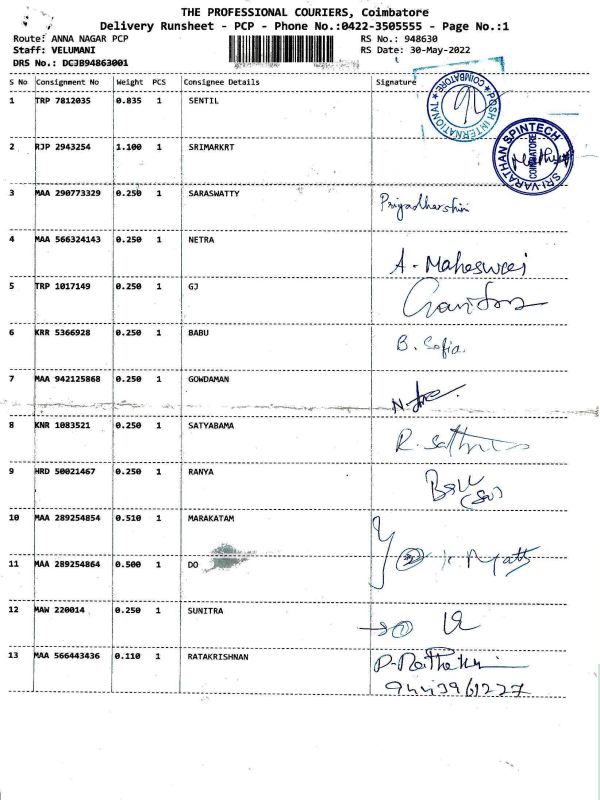 THE PROFESSIONAL COURIERS, Coimbatore
Delivery Runsheet - PCP - Phone No.:0422-3505555 - Page No.:1
Route: ANNA NAGAR PCP RS No.: 948630
Staff: VELUMANI RS Date: 30-May-2022
DRS No.: DCJB94863001
S No Consignment No Weight PCS Consignee Details Signature
1 TRP 7812035 0.835 1 SENTIL
POSH INTERNATIONAL COIMBATORE
2 RJP 2943254 1.100 1 SRIMARKRT
SRI-VARATHAN SPINTECH COIMBATORE
3 MAA 290773329 0.250 1 SARASWATTY Priyadharshini
4 MAA 566324143 0.250 1 NETRA A. Maheswari
5 TRP 1017149 0.250 1 GJ
6 KRR 5366928 0.250 1 BABU B. Sofia.
7 MAA 942125868 0.250 1 GOWDAMAN
8 KNR 1083521 0.250 1 SATYABAMA
9 HRD 50021467 0.250 1 RANYA
10 MAA 289254854 0.510 1 MARAKATAM
11 MAA 289254864 0.500 1 DO
12 MAW 220014 0.250 1 SUNITRA
13 MAA 566443436 0.110 1 RATAKRISHNAN